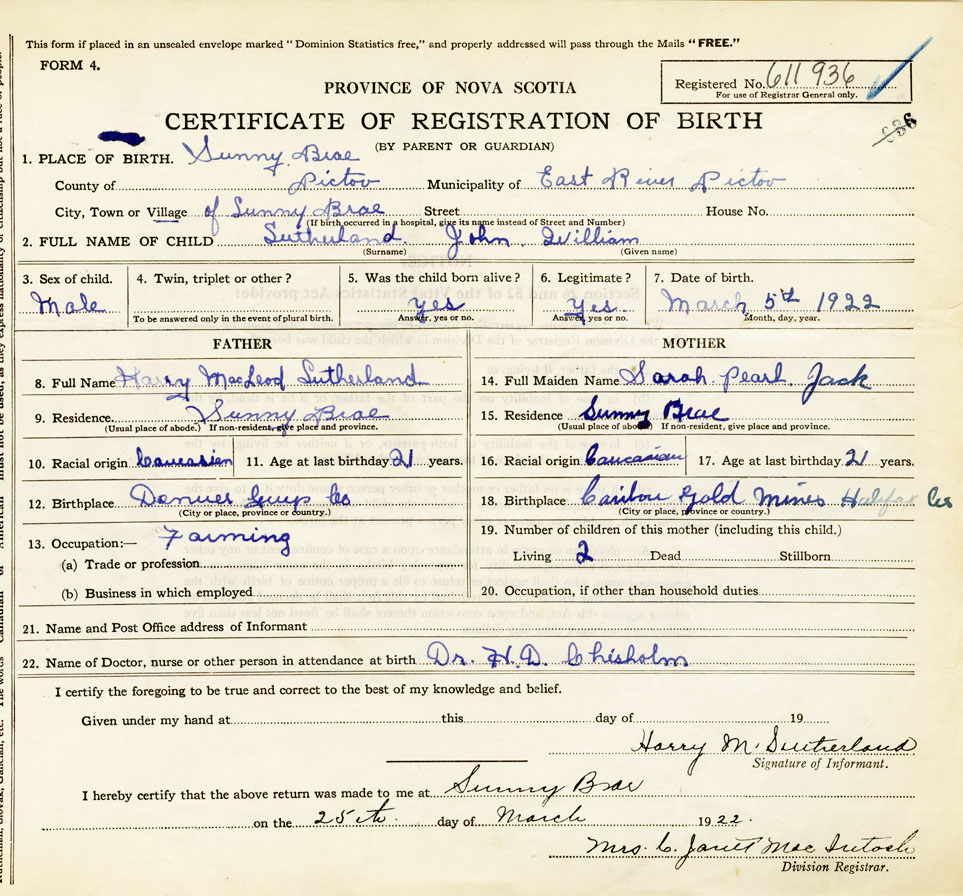 This form if placed in an unsealed envelope marked "Dominion Statistics free," and properly addressed will pass through the Mails "FREE."
FORM 4.
Registered No. 611 936
For use of Registrar General only.
PROVINCE OF NOVA SCOTIA
CERTIFICATE OF REGISTRATION OF BIRTH
936
(BY PARENT OR GUARDIAN)
1. PLACE OF BIRTH. Sunny Brae
County of Pictou Municipality of East River Pictou
City, Town or Village of Sunny Brae Street House No.
(If birth occurred in a hospital, give its name instead of Street and Number)
2. FULL NAME OF CHILD Sutherland John William
(Surname) (Given name)
3. Sex of child. 4. Twin, triplet or other? 5. Was the child born alive? 6. Legitimate? 7. Date of birth.
Male Yes Yes March 5th 1922
To be answered only in the event of plural birth. Answer, yes or no. Answer, yes or no. Month, day, year.
FATHER MOTHER
8. Full Name Harry MacLeod Sutherland 14. Full Maiden Name Sarah Pearl Jack
9. Residence Sunny Brae 15. Residence Sunny Brae
(Usual place of abode.) If non-resident, give place and province. (Usual place of abode) If non-resident, give place and province.
10. Racial origin Caucasian 11. Age at last birthday 21 years. 16. Racial origin Caucasian 17. Age at last birthday 21 years.
12. Birthplace Denver Guys Co 18. Birthplace Caribou Gold Mines Halifax Co
(City or place, province or country.) (City or place, province or country.)
13. Occupation:— Farming 19. Number of children of this mother (including this child.)
Living 2 Dead Stillborn
(a) Trade or profession
(b) Business in which employed 20. Occupation, if other than household duties
21. Name and Post Office address of Informant
22. Name of Doctor, nurse or other person in attendance at birth Dr. H. D. Chisholm
I certify the foregoing to be true and correct to the best of my knowledge and belief.
Given under my hand at this day of 19
Harry M. Sutherland
Signature of Informant.
I hereby certify that the above return was made to me at Sunny Brae
on the 25th day of March 1922.
Mrs. C. Janet MacIntosh
Division Registrar.